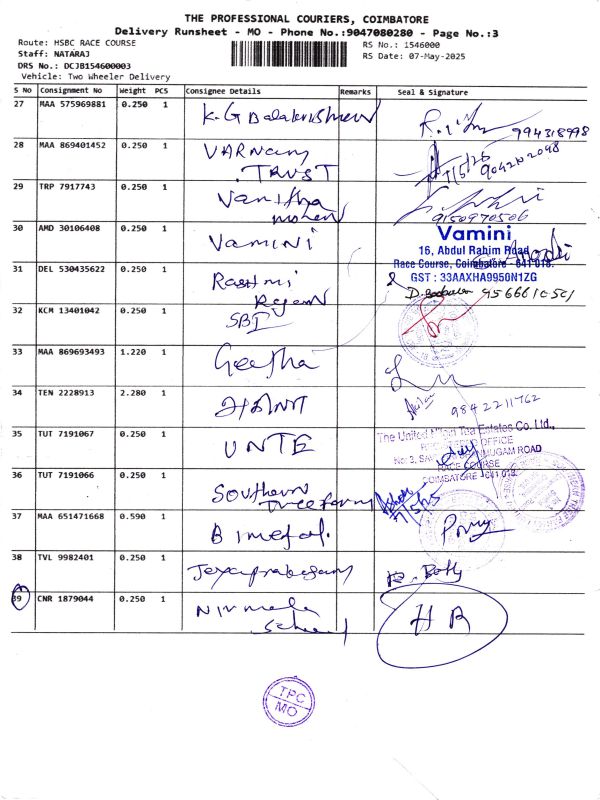 THE PROFESSIONAL COURIERS, COIMBATORE
Delivery Runsheet - MO - Phone No.:9047080280 - Page No.:3
Route: HSBC RACE COURSE
RS No.: 1546000
Staff: NATARAJ
RS Date: 07-May-2025
DRS No.: DCJB154600003
Vehicle: Two Wheeler Delivery
S No Consignment No Weight PCS Consignee Details Remarks Seal & Signature
27 MAA 575969881 0.250 1 K.G Balakrishnan 994318998
28 MAA 869401452 0.250 1 VARNAM
TRUST
29 TRP 7917743 0.250 1 Vanitha
mohan 9150970506
30 AMD 30106408 0.250 1 VAMINI
Vamini
16, Abdul Rahim Road
Race Course, Coimbatore - 641 018.
GST : 33AAXHA9950N1ZG
31 DEL 530435622 0.250 1 Rashmi
32 KCM 13401042 0.250 1 SBI
33 MAA 869693493 1.220 1 Geetha
34 TEN 2228913 2.280 1 9842211762
35 TUT 7191067 0.250 1 UNTE
The United Nilgiri Tea Estates Co. Ltd.,
OFFICE
RACE COURSE
COIMBATORE - 641 018
36 TUT 7191066 0.250 1 Southern
Tree farm
37 MAA 651471668 0.590 1
38 TVL 9982401 0.250 1
39 CNR 1879044 0.250 1 Nirmala
H R
TPC
MO